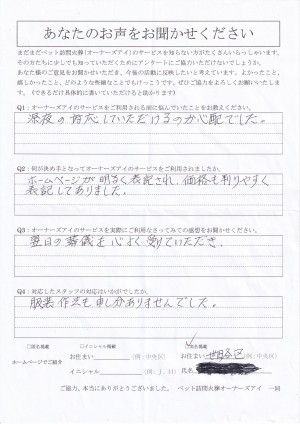 あなたのお声をお聞かせください
まだまだペット訪問火葬(オーナーズアイ)のサービスを知らない方がたくさんいらっしゃいます。
その方たちに少しでも知っていただくためにアンケートにご協力いただけないでしょうか。
あなた様のご意見をお聞かせいただき、今後の活動に反映したいと考えています。よかったこと、
嬉しかったこと、どのような些細なことでもけっこうです。ぜひご協力をよろしくお願いいたしま
す。(できるだけ具体的に書いていただけると助かります)
Q1:オーナーズアイのサービスをご利用される前に悩んでいたことをお教えください。
深夜の対応していただけるのか心配でした。
Q2:何が決め手となってオーナーズアイのサービスをご利用されましたか。
ホームページが明るく表記され、価格も判りやすく
表記してありました。
Q3:オーナーズアイのサービスを実際にご利用なさってみての感想をお聞かせください。
翌日の葬儀を心よく受ていただき、
Q4:対応したスタッフの対応はいかがでしたか。
服装作法も申し分ありませんでした。
□匿名掲載 □イニシャル掲載 匿名掲載
ホームページでご紹介 お住まい (例:中央区) お住まい 世田谷区 (例:中央区)
イニシャル (例:J、H) 氏名
ご協力、本当にありがとうございました。 ペット訪問火葬オーナーズアイ 一同